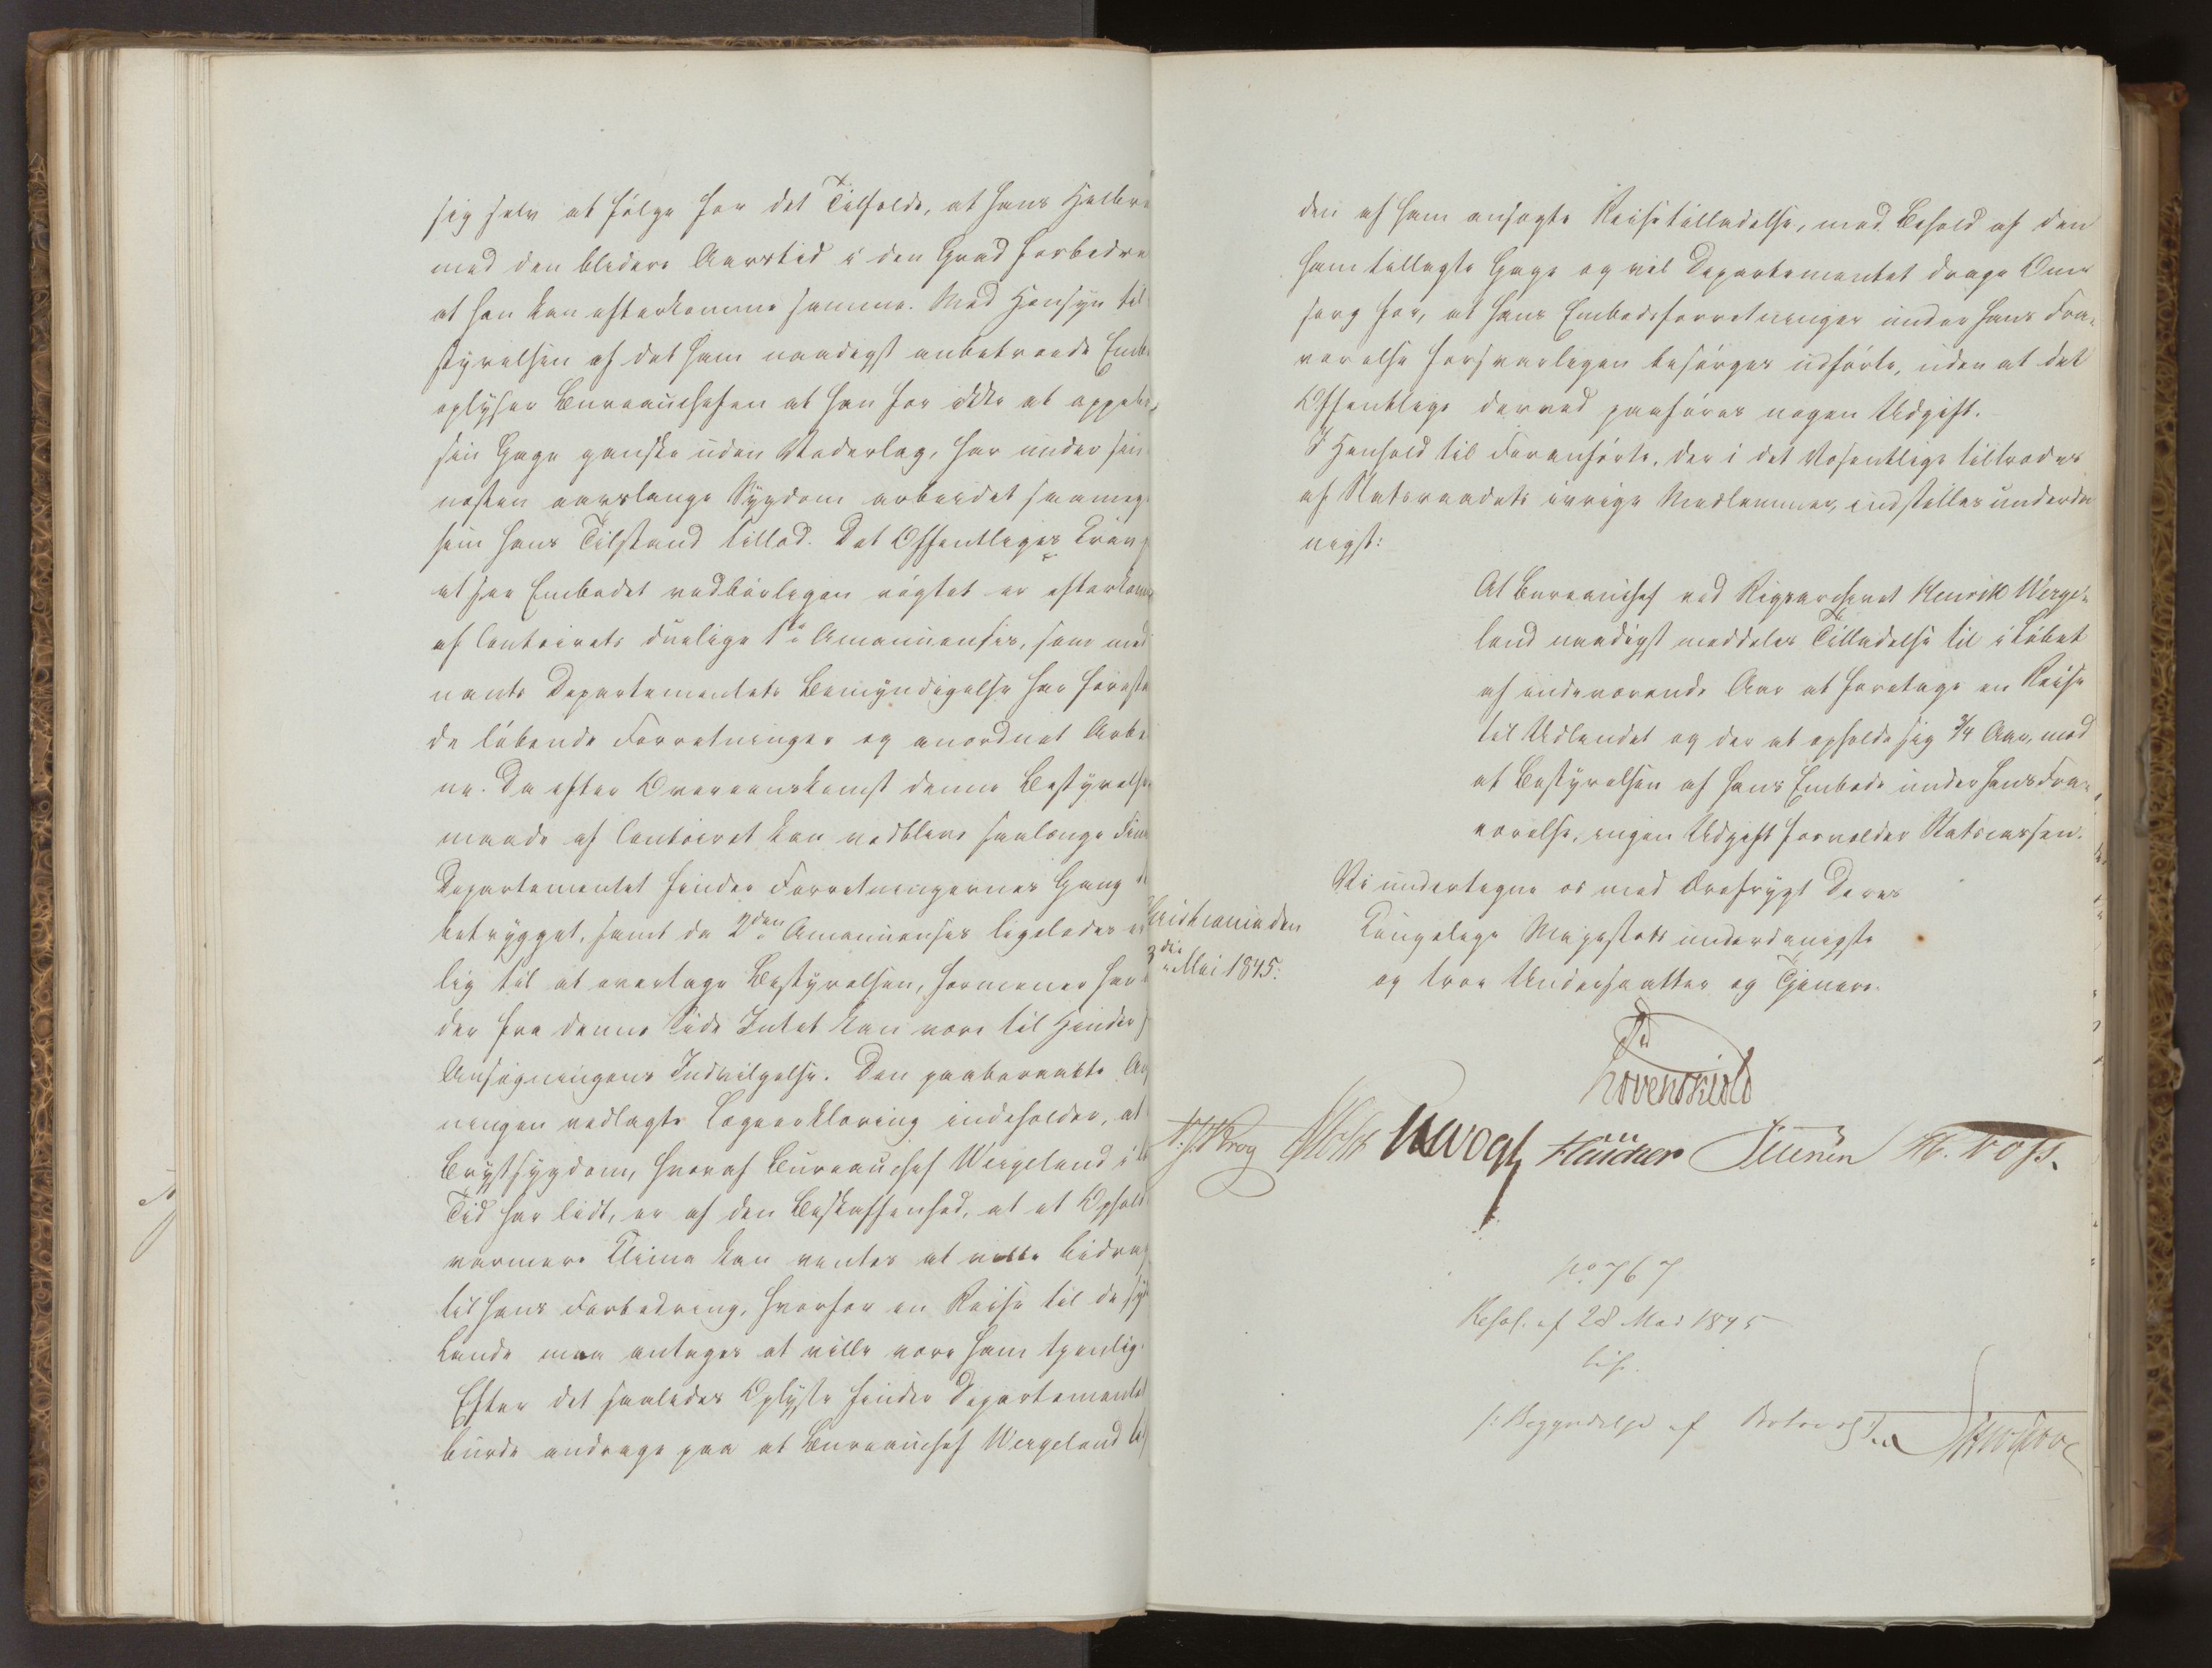 sig selv at følge for det Tilfælde, at hans Helbre
med den blidere Aarstid i den Grad forbedre
at han kan efterkomme samme. Med Hensyn til
styrelsen af det ham naadigst anbetroede Emb
oplyser Bureauchefen at han for ikke at oppebæ
sin Gage ganske uden Vederlag, har under sin
næsten aarslange Sygdom arbeidet saameg
som hans Tilstand tillod. Det Offentliges Krav
at see Embedet vedbørligen røgtet er efterkom
af Contoirets duelige 1ste Amanuensis, som med
nævnte Departementets Bemyndigelse har forestaa
de løbende Forretninger og anordnet Arbei
ne. Da efter Overeenskomst denne Bestyrelses
maade af Contoiret kan vedblive saalænge Fina
Departementet finder Forretningernes Gang
betrygget, samt da 2den Amanuensis ligeledes er
lig til at overtage Bestyrelsen, formener han
der fra denne Side Intet kan være til Hinder f
Ansøgningens Indvilgelse. Den paaberaabte An
ningen vedlagte Lægeerklæring indeholder, at
Brystsygdom, hvoraf Bureauchef Wergeland i
Tid har lidt, er af den Beskaffenhed, at et Ophold
varmere Clima kan ventes at ville bidrag
til hans Forbedring, hvorfor en Reise til de syd
Lande maa antages at ville være ham tjenlig.
Efter det saaledes Oplyste finder Departementet
burde andrage paa at Bureauchef Wergeland
den af ham ansøgte Reisetilladelse, med Behold af den
ham tillagte Gage og vil Departementet drage Om-
sorg for, at hans Embedsforretninger under hans Fra-
værelse forsvarligen besørges udførte, uden at det
Offentlige derved paaføres nogen Udgift.
I Henhold til Foranførte, der i det Væsentlige tiltrædes
af Statsraadets øvrige Medlemmer, indstilles underda
nigst:
At Bureauchef ved Rigsarchivet Henrik Werge-
land naadigst meddeles Tilladelse til i Løbet
af indeværende Aar at foretage en Reise
til Udlandet og der at opholde sig 3/4 Aar, mod
at Bestyrelsen af hans Embede under hans Fra-
værelse, ingen Udgift forvolder Statscassen.
Christiania den
3die Mai 1845.
Vi undertegne os med Ærefrygt Deres
Kongelige Majestæts underdanigste
og troe Undersaatter og Tjenere.
Løvenskiold
Krog Holst Vogt Hauchen H. Foss.
No 767
Resol. af 28 Mai 1845